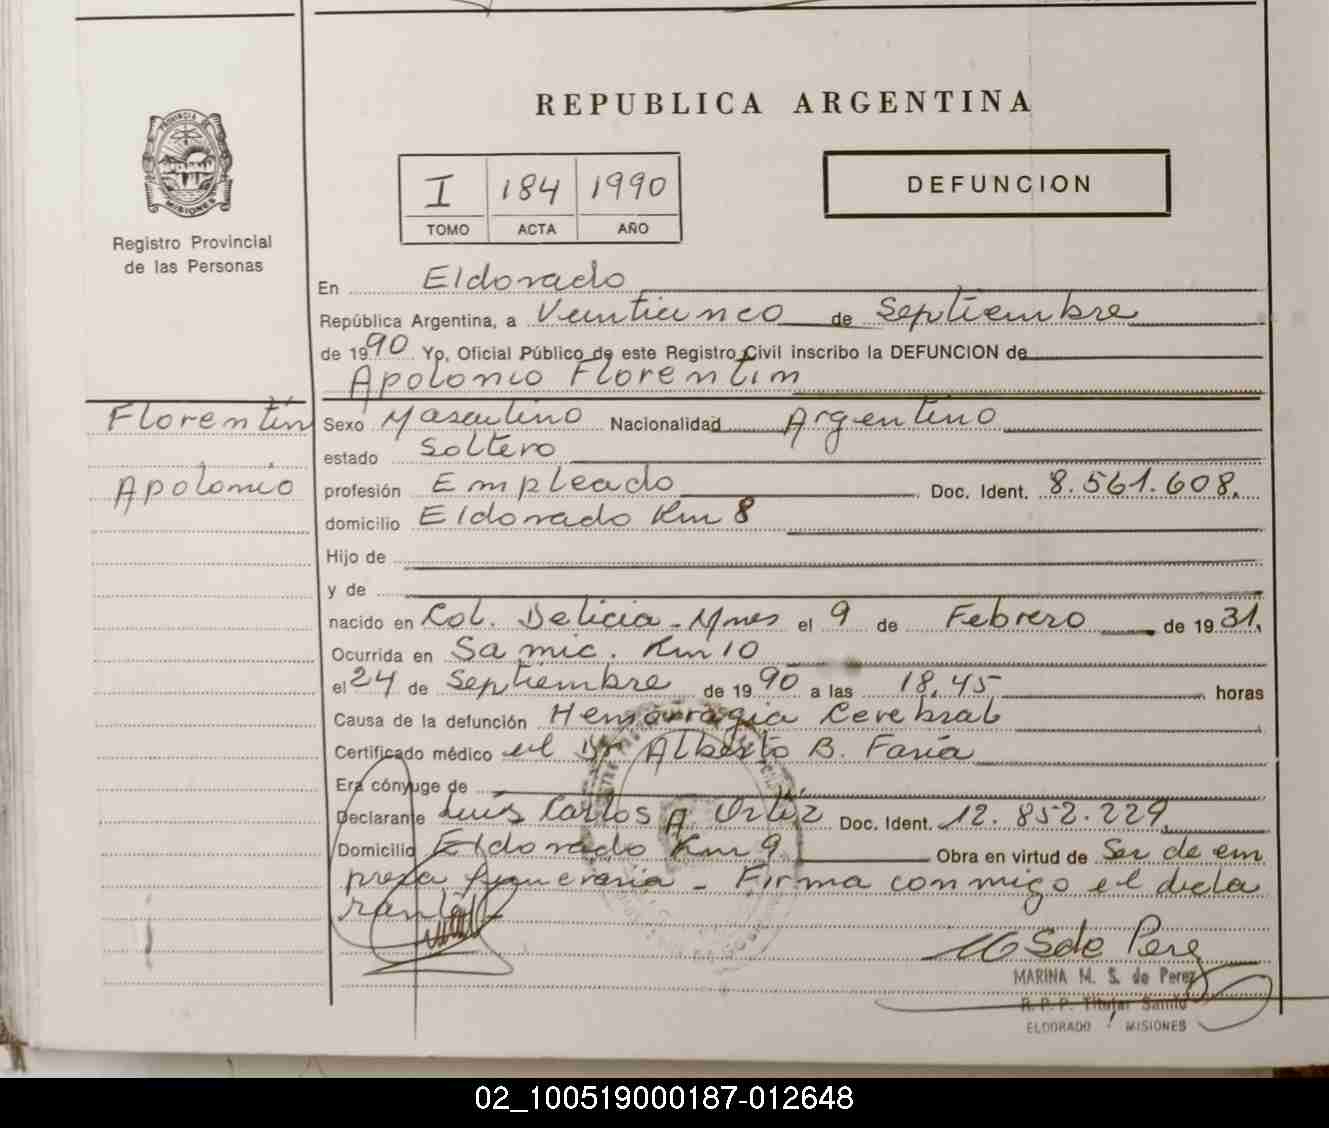 REPUBLICA ARGENTINA
PROVINCIA DE
MISIONES
Registro Provincial
de las Personas
I 184 1990
TOMO ACTA AÑO
DEFUNCION
En Eldorado
República Argentina, a Veintiunco de Septiembre
de 1990 Yo, Oficial Público de este Registro Civil inscribo la DEFUNCION de
Apolonio Florentin
Florentín
Apolonio
Sexo Masculino Nacionalidad Argentino
estado Soltero
profesión Empleado Doc. Ident. 8.561.608.
domicilio Eldorado Km 8
Hijo de
y de
nacido en Col. Delicia - Mnes el 9 de Febrero de 1931,
Ocurrida en Sa mic. Km 10
el 24 de Septiembre de 1990 a las 18,45 horas
Causa de la defunción Hemorragia Cerebral
Certificado médico el Dr Alberto B. Faría
Era cónyuge de
Declarante Luis Carlos A. Ortíz Doc. Ident. 12.852.229
Domicilio Eldorado Km 9 Obra en virtud de Ser de em
presa funeraria - Firma conmigo el decla
rante
MARINA M. S. de Perez
R. P. P. Titular
ELDORADO MISIONES
02_100519000187-012648